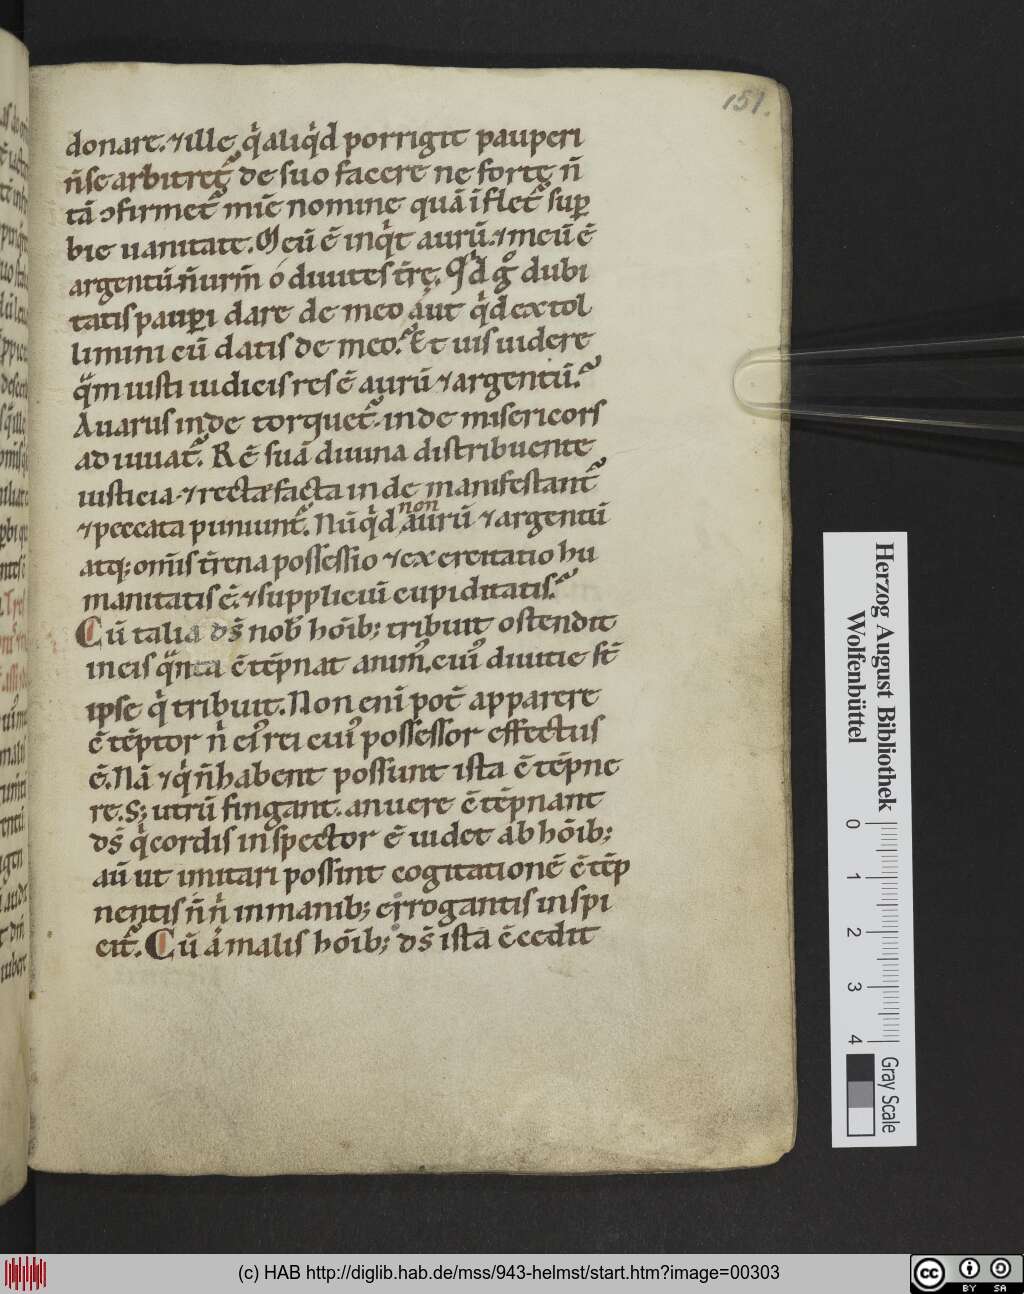 151.
donare. ⁊ ille q̇ aliq̇d porrigit pauperi
n̄ se arbitret᷑ de suo facere ne forte n̄
tā ɔfirmet᷑ mīe nomine quā īflet᷑ suꝑ
bie uanitate. Meū ē inq̇t aurū. ⁊ meū ē
argentū. n̄ urm̄ ó diuites t̄rę. Qd gͦ dubi
tatis pauꝑi dare de meo aut q̇d extol
limini eū datis de meo. Et uis uidere
qm iusti iudicis res ē aurū ⁊ argentū.
Auarus inde torquet᷑. inde misericors
adiuuat᷑. Rē suā diuina distribuente
iusticia. ⁊ recta facta inde manifestant᷑
⁊ peccata puniunt᷑. Nūq̇d non aurū ⁊ argentū
atq; om̄is t̄rena possessio ⁊ exercitatio hu
manitatis ē. ⁊ suppliciū cupiditatis.
Cū talia ds̄ nob̄ hōib; tribuit ostendit
in eis qnta ētēpnat anim᷒. cui᷒ diuitie st̄
ipse q̇ tribuit. Non enī pot̄ apparere
ētēptor n̄ ei᷒ rei cui᷒ possessor effectus
ē. Nā ⁊ q̇ n̄ habent possunt ista ētēpne
re. S; utrū fingant. an uere ētēpnant
ds̄ q̇ cordis inspector ē uidet ab hōib;
aū ut imitari possint cogitationē ētēp
nentis n̄ n̄ in manib; errogantis inspi
cit᷑. Cū a malis hōib; ds̄ ista ēcedit
Herzog August Bibliothek
Wolfenbüttel
0 1 2 3 4
Gray Scale
(c) HAB http://diglib.hab.de/mss/943-helmst/start.htm?image=00303
cc BY SA